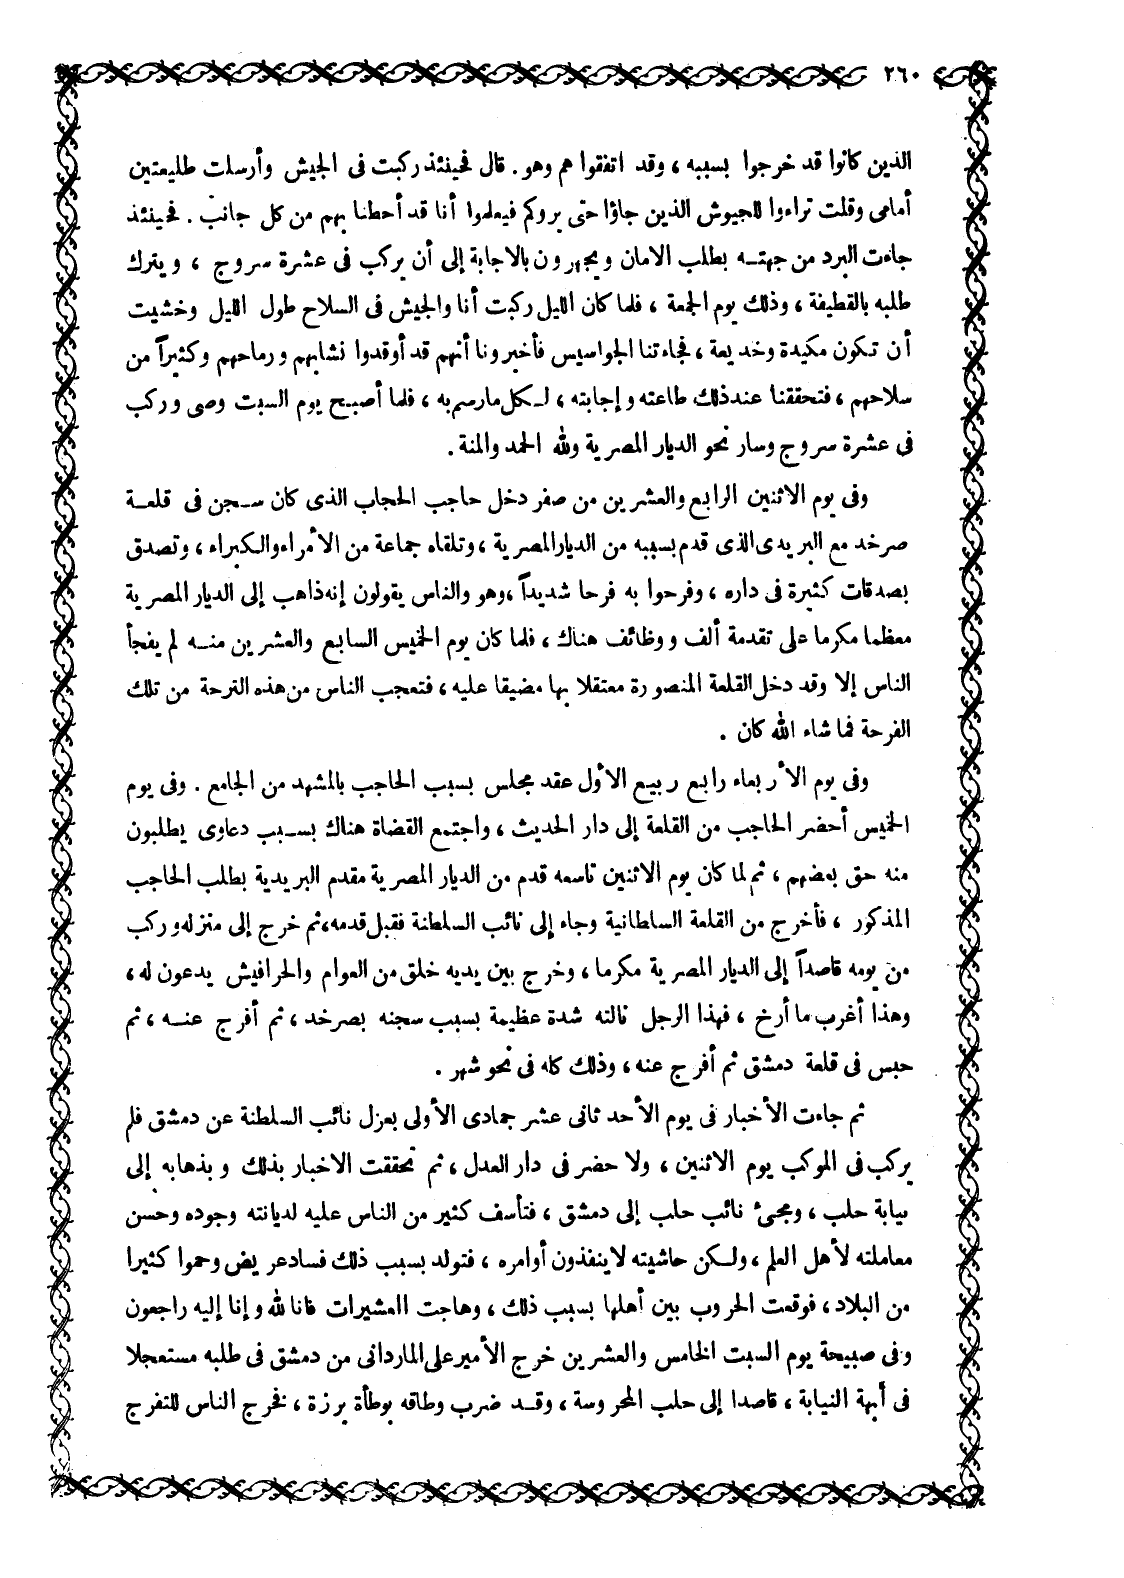 ٢٦٠
الذين كانوا قد خرجوا بسببه ، وقد اتفقوا هم وهو . قال فحينئذ ركبت فى الجيش وأرسلت طليعتين
أمامى وقلت تراءوا للجيوش الذين جاؤا حتى يروكم فيعلموا أنا قد أحطنا بهم من كل جانب . فحينئذ
جاءت البرد من جهته بطلب الامان ويجهرون بالاجابة إلى أن يركب فى عشرة سروج ، ويترك
طلبه بالقطيفة ، وذلك يوم الجمعة ، فلما كان الليل ركبت أنا والجيش فى السلاح طول الليل وخشيت
أن تكون مكيدة وخديعة ، فجاءتنا الجواسيس فأخبرونا أنهم قد أوقدوا نشابهم ورماحهم وكثيراً من
سلاحهم ، فتحققنا عند ذلك طاعته وإجابته ، لكل ما رسم به ، فلما أصبح يوم السبت وصى وركب
فى عشرة سروج وسار نحو الديار المصرية ولله الحمد والمنة .
وفى يوم الاثنين الرابع والعشرين من صفر دخل حاجب الحجاب الذى كان سجن فى قلعة
صرخد مع البريدى الذى قدم بسببه من الديار المصرية ، وتلقاه جماعة من الأمراء والكبراء ، وتصدق
بصدقات كثيرة فى داره ، وفرحوا به فرحا شديداً ، وهو والناس يقولون إنه ذاهب إلى الديار المصرية
معظما مكرما على تقدمة ألف ووظائف هناك ، فلما كان يوم الخميس السابع والعشرين منه لم يفجأ
الناس إلا وقد دخل القلعة المنصورة معتقلا بها مضيقا عليه ، فتعجب الناس من هذه الترحة من تلك
الفرحة فما شاء الله كان .
وفى يوم الأربعاء رابع ربيع الأول عقد مجلس بسبب الحاجب بالمشهد من الجامع . وفى يوم
الخميس أحضر الحاجب من القلعة إلى دار الحديث ، واجتمع القضاة هناك بسبب دعاوى يطلبون
منه حق بعضهم ، ثم لما كان يوم الاثنين تاسعه قدم من الديار المصرية مقدم البريدية بطلب الحاجب
المذكور ، فأخرج من القلعة السلطانية وجاء إلى نائب السلطنة فقبل قدمه ، ثم خرج إلى منزله وركب
من يومه قاصداً إلى الديار المصرية مكرما ، وخرج بين يديه خلق من العوام والحرافيش يدعون له ،
وهذا أغرب ما أرخ ، فهذا الرجل نالته شدة عظيمة بسبب سجنه بصرخد ، ثم أفرج عنه ، ثم
حبس فى قلعة دمشق ثم أفرج عنه ، وذلك كله فى نحو شهر .
ثم جاءت الأخبار فى يوم الأحد ثانى عشر جمادى الأولى بعزل نائب السلطنة عن دمشق فلم
يركب فى الموكب يوم الاثنين ، ولا حضر فى دار العدل ، ثم تحققت الاخبار بذلك وبذهابه إلى
نيابة حلب ، ومجئ نائب حلب إلى دمشق ، فتأسف كثير من الناس عليه لديانته وجوده وحسن
معاملته لأهل العلم ، ولكن حاشيته لاينفذون أوامره ، فتولد بسبب ذلك فساد عريض وحموا كثيرا
من البلاد ، فوقعت الحروب بين أهلها بسبب ذلك ، وهاجت العشيرات فانا لله وإنا إليه راجعون
وفى صبيحة يوم السبت الخامس والعشرين خرج الأمير على الماردانى من دمشق فى طلبه مستعجلا
فى أبهة النيابة ، قاصدا إلى حلب المحروسة ، وقد ضرب وطاقه بوطأة برزة ، فخرج الناس للتفرج